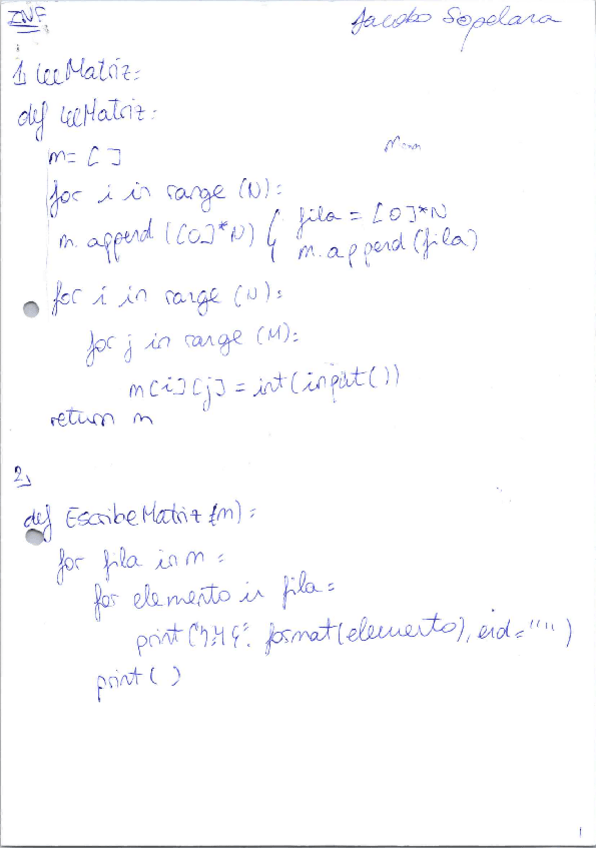 INF Jacobo Sopelana
1, leeMatriz:
def leeMatriz:
m= [ ]
for i in range (N):
m.append ([0]*N) { fila = [0]*N
m.append(fila)
for i in range (N):
for j in range (M):
m[i][j] = int(input())
return m
2,
def EscribeMatriz (m):
for fila in m:
for elemento in fila:
print( .format(elemento), end="")
print( )
1